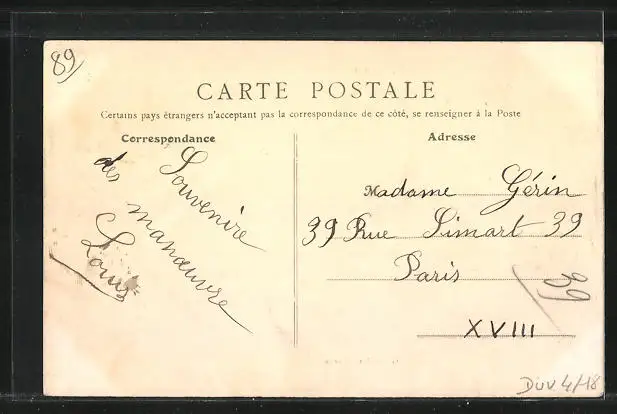 89
CARTE POSTALE
Certains pays étrangers n'acceptant pas la correspondance de ce côté, se renseigner à la Poste
Correspondance
Souvenire
des manœuvre
Louis
Adresse
Madame Gérin
39 Rue Simart 39
Paris
XVIII
39
DUV 4/18